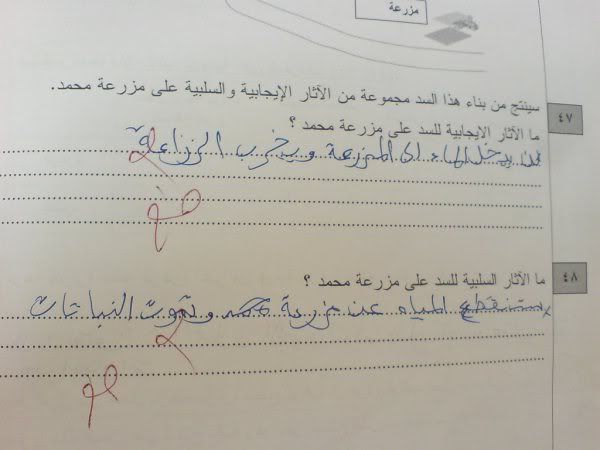 مزرعة
سينتج من بناء هذا السد مجموعة من الآثار الإيجابية والسلبية على مزرعة محمد.
٤٧
ما الآثار الإيجابية للسد على مزرعة محمد ؟
لن يدخل الماء الى المزرعة ويخرب الزراعة
٤٨
ما الآثار السلبية للسد على مزرعة محمد ؟
ستنقطع المياه عن مزرعة محمد وتموت النباتات